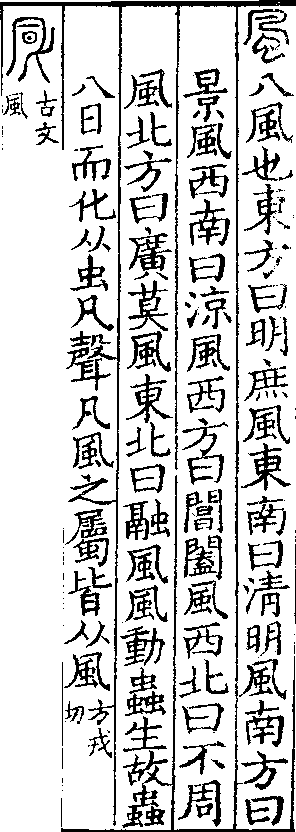 風八風也東方曰明庶風東南曰清明風南方曰
景風西南曰涼風西方曰閶闔風西北曰不周
風北方曰廣莫風東北曰融風風動蟲生故蟲
八日而化从虫凡聲凡風之屬皆从風方戎切
𠙊古文風